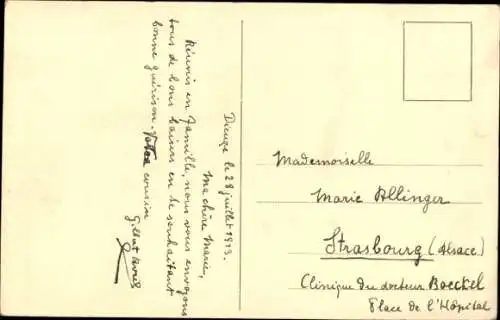 Dieuze le 28 juillet 1913.
Ma chère Marie,
Réunis en famille, nous vous envoyons
tous de bons baisers en te souhaitant
bonne guérison. Votre cousin
Gilbert
Mademoiselle
Marie Allinger
Strasbourg (Alsace)
Clinique du docteur Boeckel
Place de l'Hôpital